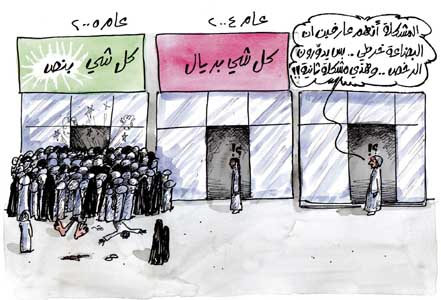 عام ٢٠٠٤
عام ٢٠٠٥
كل شي بريال
كل شي بنص
المشكلة أنهم عارفين ان
البضاعة خرطي .. بس يدورون
الرخص .. وهذي مشكلة ثانية !!
؟!
؟!